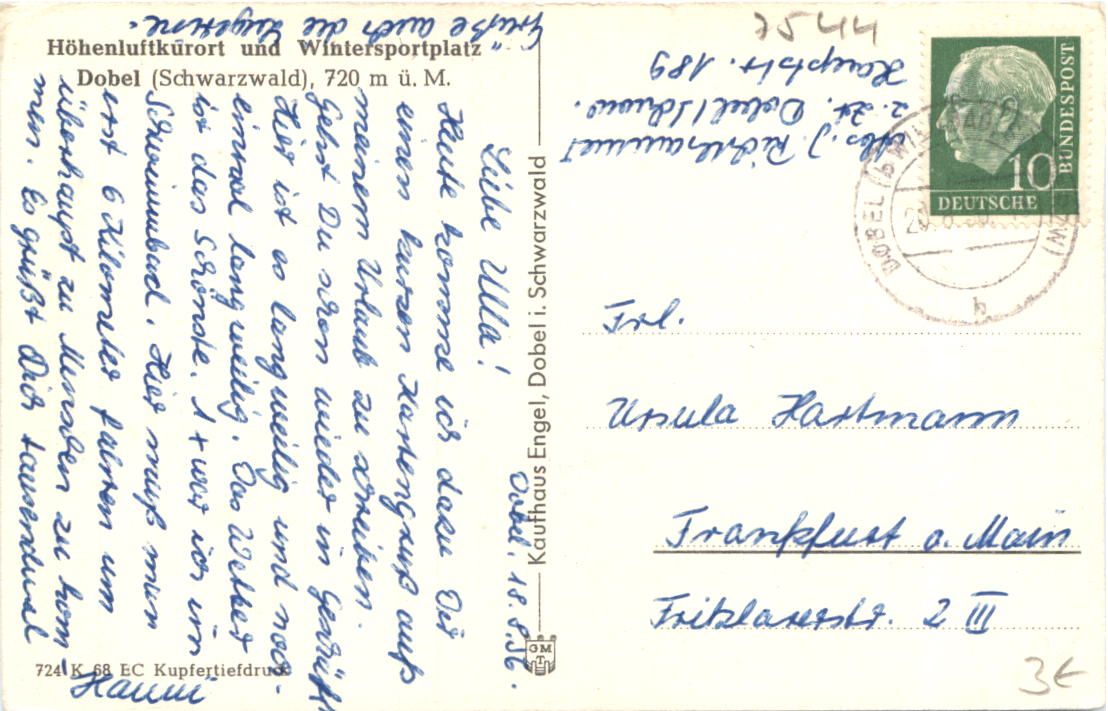 Höhenluftkurort und Wintersportplatz
Dobel (Schwarzwald), 720 m ü. M.
Dobel. 18.8.56.
Liebe Ulla!
Heute komme ich dazu Dir
einen kurzen Kartengruß aus
meinem Urlaub zu schreiben.
Gehst Du schon wieder in
Hier ist es langweilig und noch-
einmal langweilig. Das Wetter
ist das schönste. 1 x war ich im
Schwimmbad. Hier muß man
erst 6 Kilometer fahren um
überhaupt zu Menschen zu kom-
men. Es grüßt Dich tausendmal
Hanni
Grüße auch die
724 K 68 EC Kupfertiefdruck
Kaufhaus Engel, Dobel i. Schwarzwald
GMT
7544
Abs. J.
z. Zt. Dobel/Schwarzw.
Hauptstr. 189
DEUTSCHE
BUNDESPOST
10
DOBEL
b
Frl.
Ursula Hartmann
Frankfurt a. Main
Fritzlarerstr. 2 III
3€